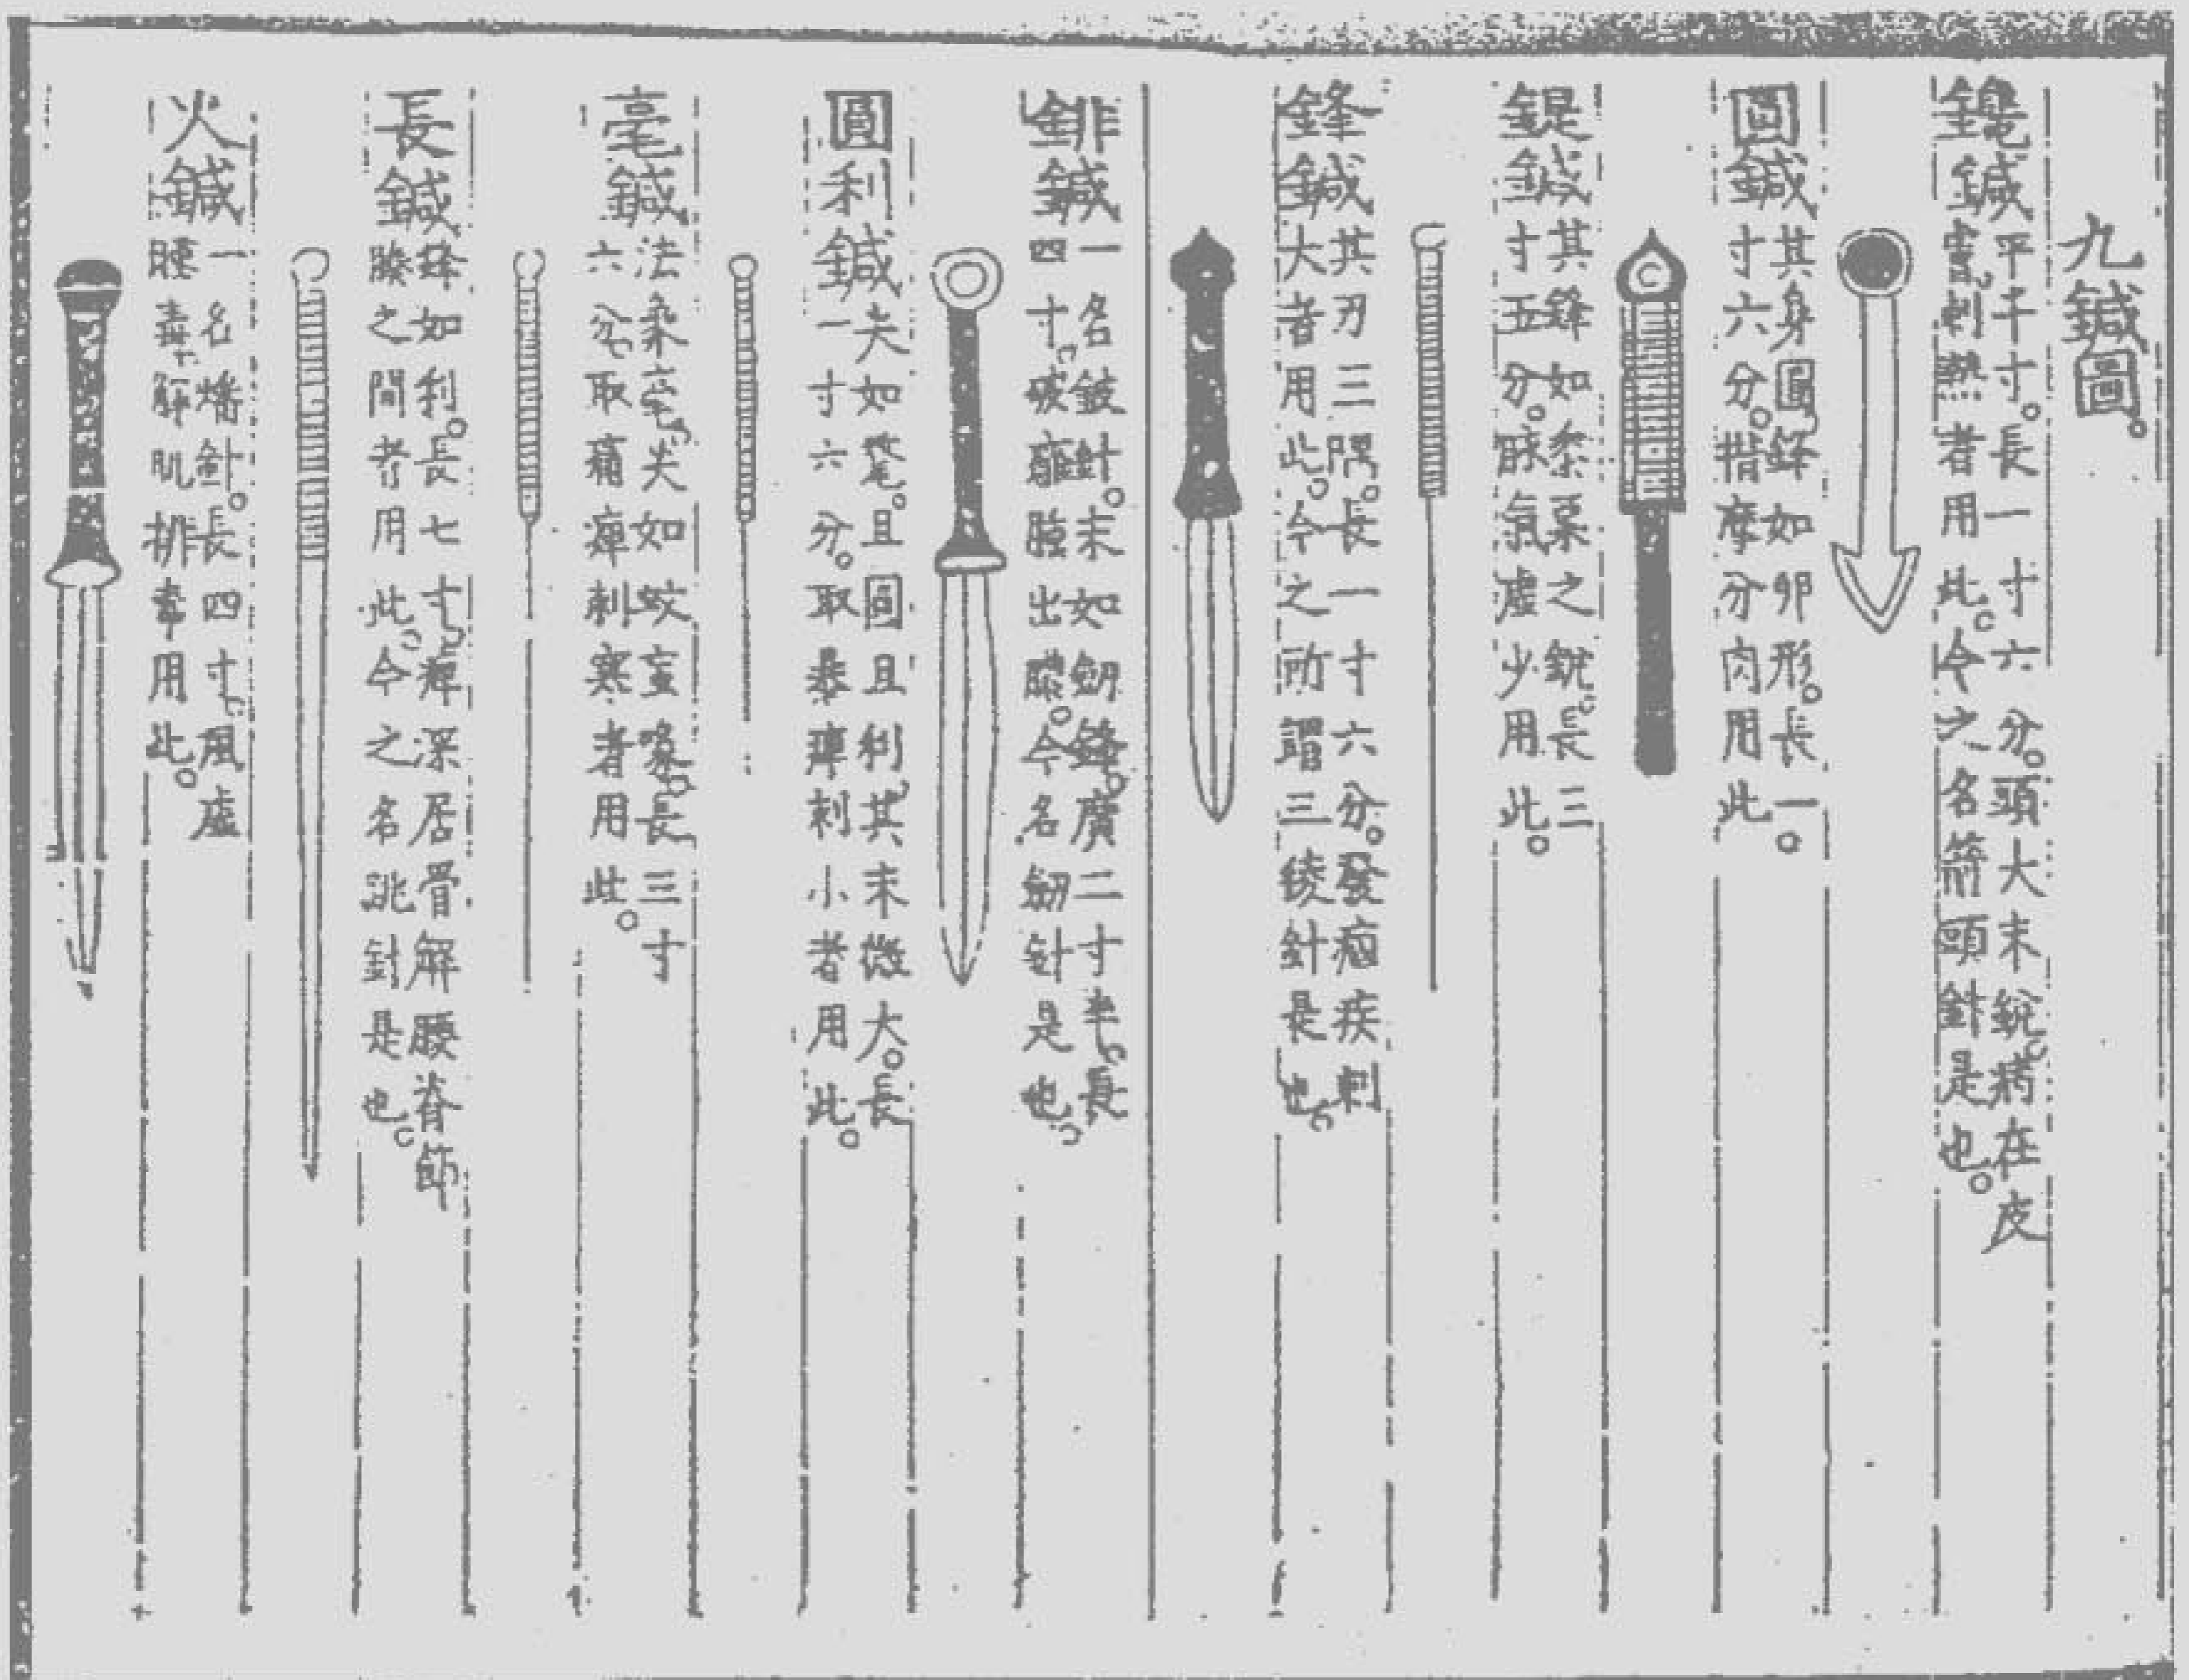 九鍼圖。
鑱鍼
平千寸。長一寸六分。頭大末銳。病在皮
膚,刺熱者用此。今之名箭頭針是也。
圓鍼
其身圓,鋒如卵形。長一
寸六分。揩摩分肉用此。
鍉鍼
其鋒如黍粟之銳。長三
寸五分。脉氣虛少用此。
鋒鍼
其刃三隅。長一寸六分。發痼疾刺
大者用此。今之所謂三稜針是也。
䤵鍼
一名鈹針。末如劒鋒。廣二寸半。長
四寸。破癰腫出膿。今名劒針是也。
圓利鍼
尖如氂。且圓且利,其末微大。長
一寸六分。取暴痺刺小者用此。
毫鍼
法象毫,尖如蚊虻喙。長三寸
六分,取痛痺刺寒者用此。
長鍼
鋒如利。長七寸,痺深居骨解腰脊節
腠之間者用此。今之名跳針是也。
火鍼
一名燔針。長四寸。風虛
腫毒,解肌排毒用此。